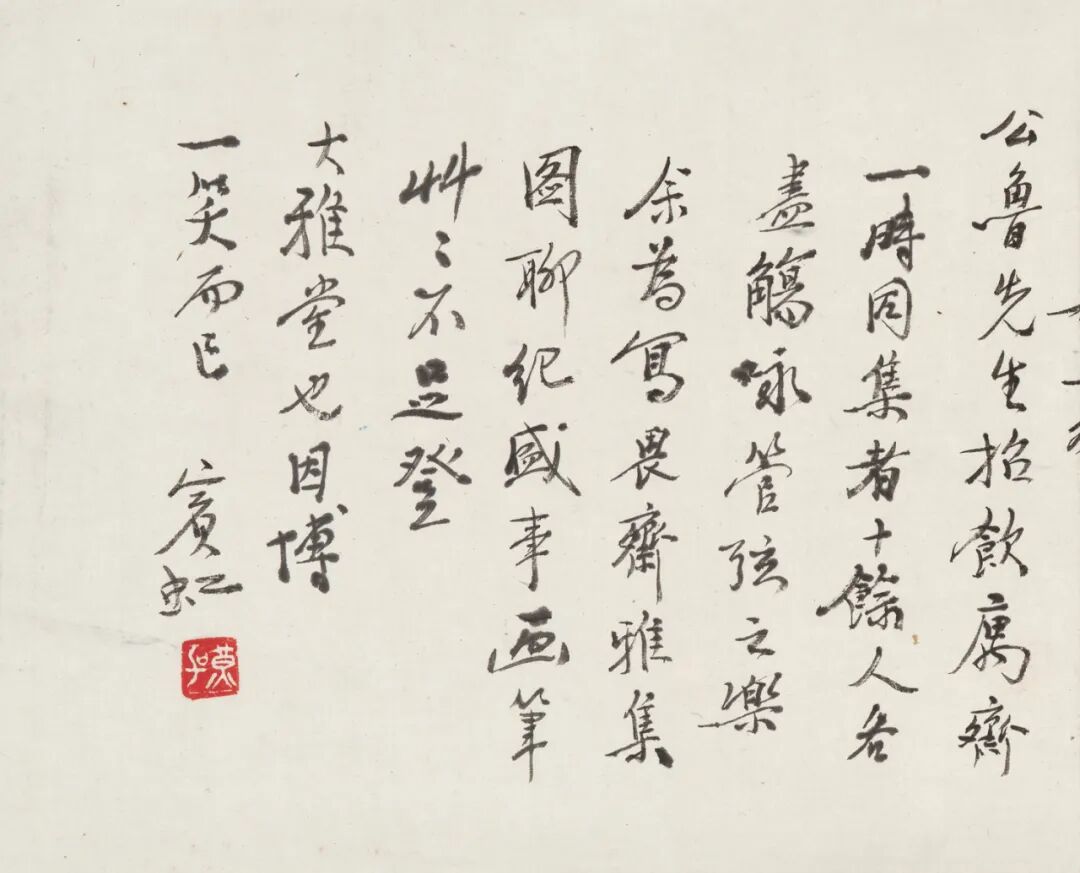 公魯先生招飲庽齋
一時同集者十餘人各
盡觴咏管弦之樂
余為寫畏齋雅集
图聊紀盛事画筆
艸〻不足登
大雅堂也因博
一笑而已 賓虹